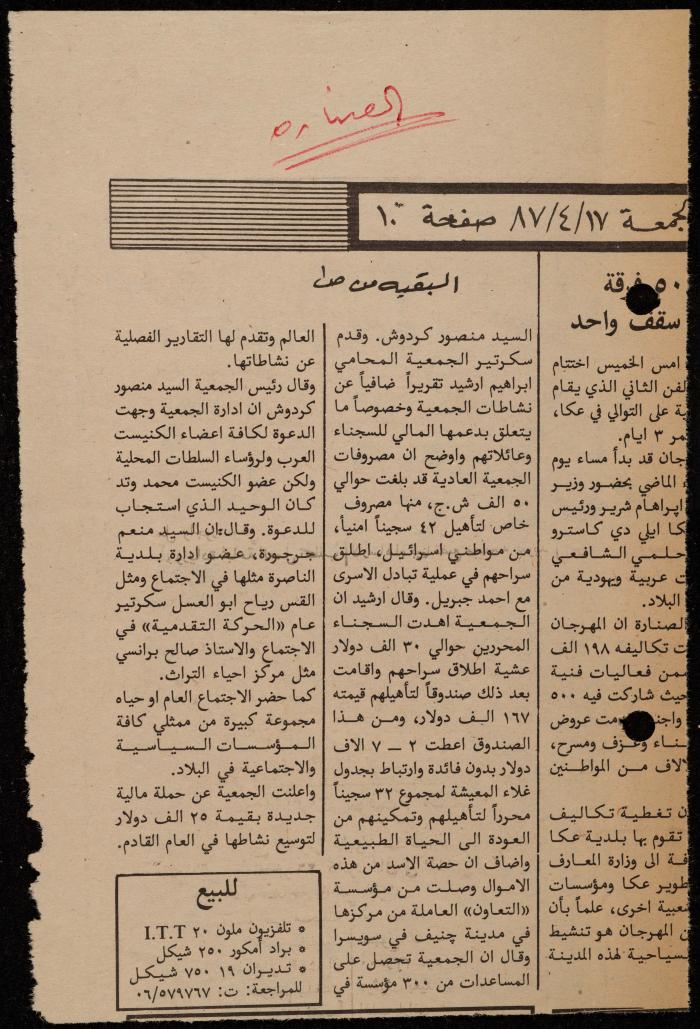 الصناره
الجمعة ٨٧/٤/١٧ صفحة ١٠
٥٠ فرقة
سقف واحد
امس الخميس اختتام
الفن الثاني الذي يقام
ية على التوالي في عكا،
مر ٣ ايام.
جان قد بدأ مساء يوم
الماضي بحضور وزير
ابراهام شرير ورئيس
كا ايلي دي كاسترو
حلمي الشافعي
ت عربية ويهودية من
البلاد.
الصنارة ان المهرجان
ت تكاليفه ١٩٨ الف
ضمن فعاليات فنية
حيث شاركت فيه ٥٠٠
مت عروض
ناء وعزف ومسرح،
الاف من المواطنين
ن تغطية تكاليف
تقوم بها بلدية عكا
فة الى وزارة المعارف
طوير عكا ومؤسسات
شعبية اخرى، علماً بأن
ن المهرجان هو تنشيط
سياحية لهذه المدينة
البقيه من ص١
السيد منصور كردوش. وقدم
سكرتير الجمعية المحامي
ابراهيم ارشيد تقريراً ضافياً عن
نشاطات الجمعية وخصوصاً ما
يتعلق بدعمها المالي للسجناء
وعائلاتهم واوضح ان مصروفات
الجمعية العادية قد بلغت حوالي
٥٠ الف ش.ج، منها مصروف
خاص لتأهيل ٤٢ سجيناً امنياً،
من مواطني اسرائيل، اطلق
سراحهم في عملية تبادل الاسرى
مع احمد جبريل. وقال ارشيد ان
الجمعية اهدت السجناء
المحررين حوالي ٣٠ الف دولار
عشية اطلاق سراحهم واقامت
بعد ذلك صندوقاً لتأهيلهم قيمته
١٦٧ الف دولار، ومن هذا
الصندوق اعطت ٢ — ٧ الاف
دولار بدون فائدة وارتباط بجدول
غلاء المعيشة لمجموع ٣٢ سجيناً
محرراً لتأهيلهم وتمكينهم من
العودة الى الحياة الطبيعية
واضاف ان حصة الاسد من هذه
الاموال وصلت من مؤسسة
«التعاون» العاملة من مركزها
في مدينة جنيف في سويسرا
وقال ان الجمعية تحصل على
المساعدات من ٣٠٠ مؤسسة في
العالم وتقدم لها التقارير الفصلية
عن نشاطاتها.
وقال رئيس الجمعية السيد منصور
كردوش ان ادارة الجمعية وجهت
الدعوة لكافة اعضاء الكنيست
العرب ولرؤساء السلطات المحلية
ولكن عضو الكنيست محمد وتد
كان الوحيد الذي استجاب
للدعوة. وقال:ان السيد منعم
جرجورة، عضو ادارة بلدية
الناصرة مثلها في الاجتماع ومثل
القس رياح ابو العسل سكرتير
عام «الحركة التقدمية» في
الاجتماع والاستاذ صالح برانسي
مثل مركز احياء التراث.
كما حضر الاجتماع العام او حياه
مجموعة كبيرة من ممثلي كافة
المؤسسات السياسية
والاجتماعية في البلاد.
واعلنت الجمعية عن حملة مالية
جديدة بقيمة ٢٥ الف دولار
لتوسيع نشاطها في العام القادم.
للبيع
* تلفزيون ملون ٢٠ I.T.T
* براد أمكور ٢٥٠ شيكل
* تديران ١٩ ٧٥٠ شيكل
للمراجعة: ت: ٠٦/٥٧٩٧٦٧